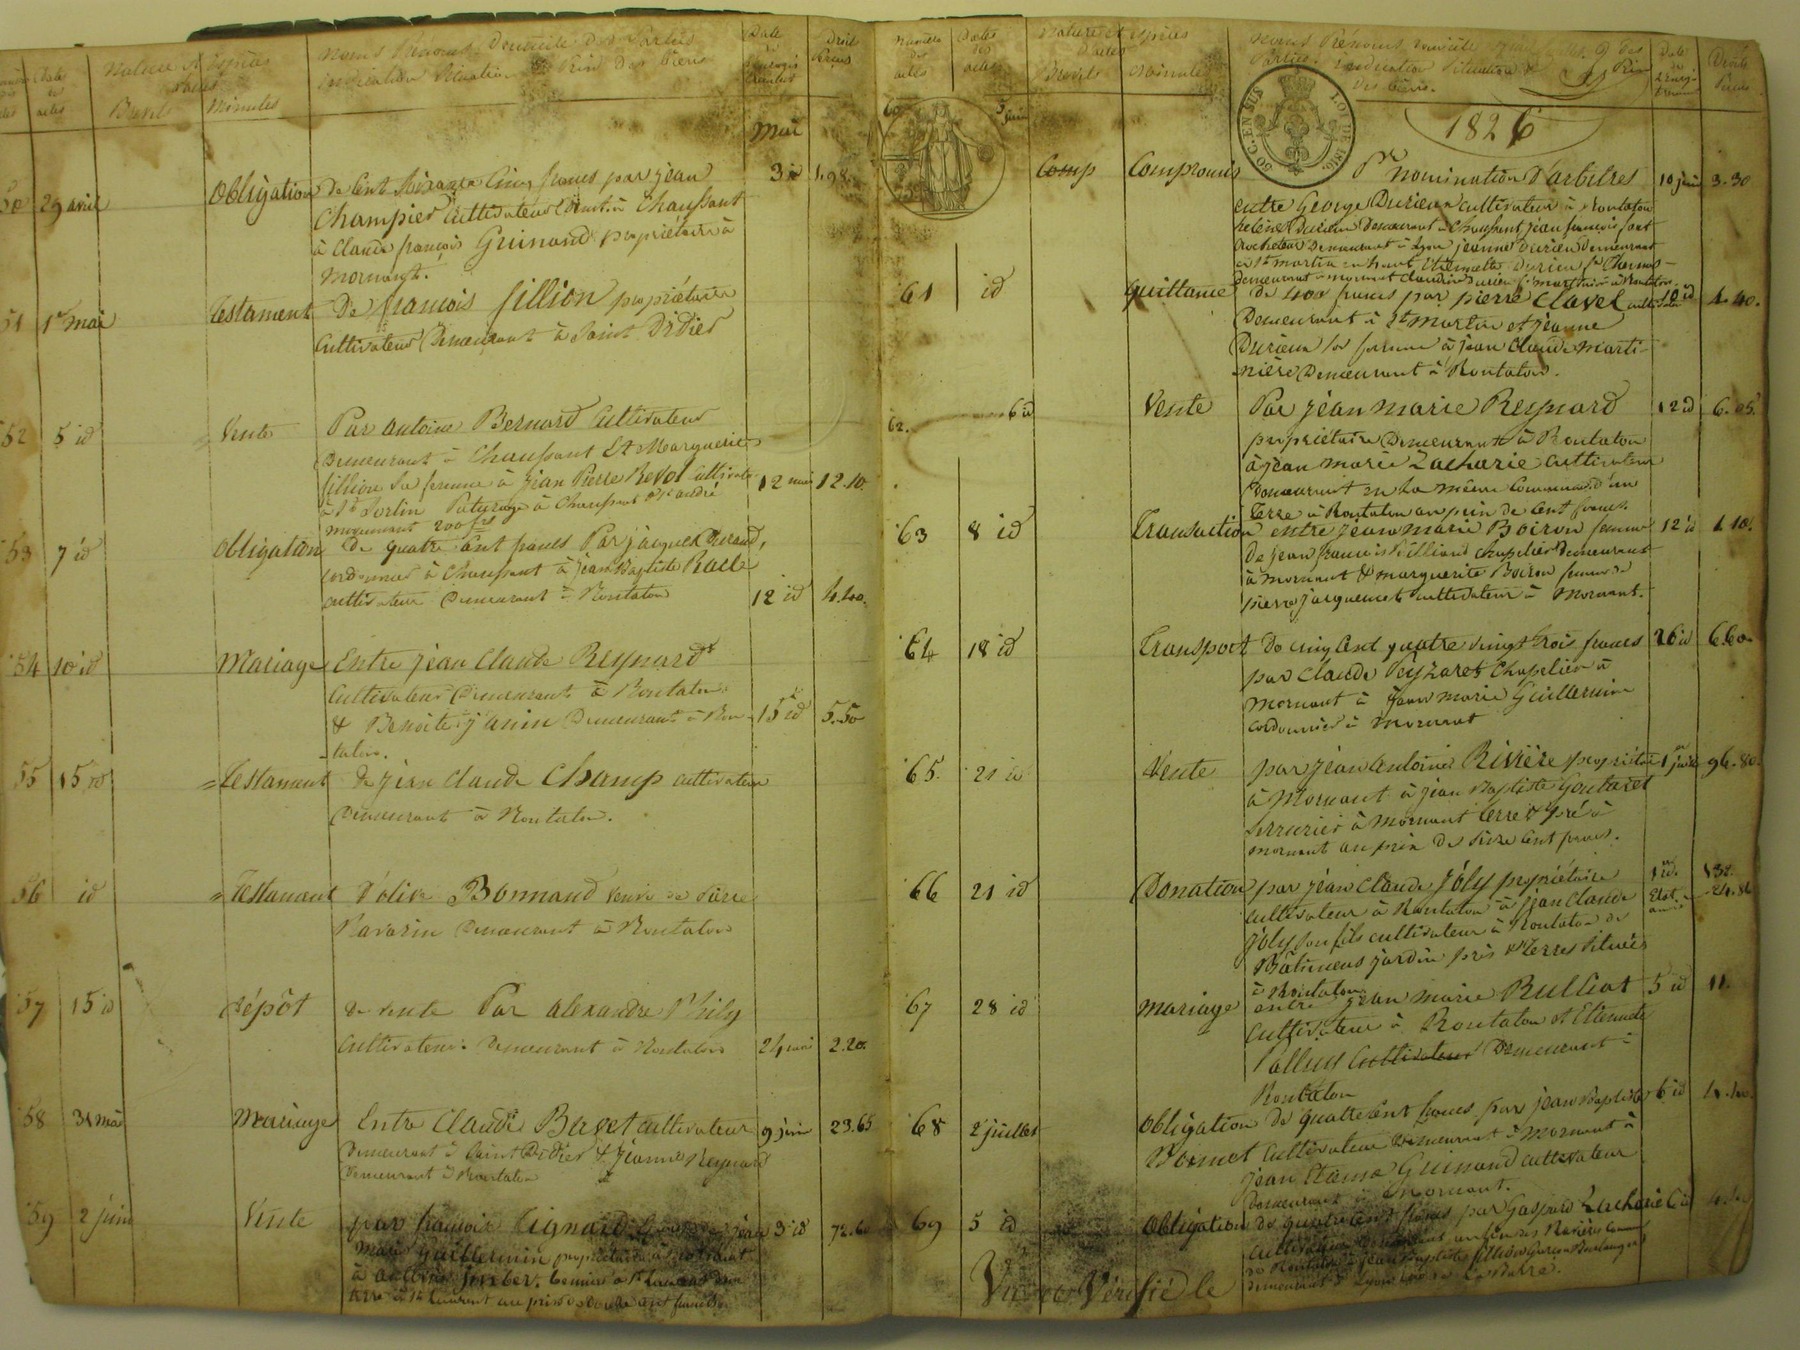 Date
des
actes
Nature et Espèces
d'actes
Brevets Minutes
Noms Prénoms Domicile des Parties
indication Situation & Prix des biens
Date
Droits
Perçus
Mai
50 29 avril Obligation de Cent Soixante Cinq francs par jean 3 id 1.98
Champier Cultivateur Demt. à Chaussant
à Claude françois Guinand propriétaire à
Mornant.
51 1er mai Testament De françois fillion propriétaire
Cultivateur Demeurant à Saint Didier
52 5 id Vente Par antoine Bernard Cultivateur
Demeurant à Chaussant Et Marguerite
fillion sa femme à jean Pierre Revol Cultivat 12 mai 12.10.
à St Sorlin Paturage à Chaussant St andré
Mornant 200 frs
53 7 id Obligation de quatre Cent francs Par jacques Durand,
Cordonnier à Chaussant à jean Baptiste Ralle
cultivateur Demeurant à Rontalon 12 id 4.40.
54 10 id Mariage Entre jean Claude Reynard
Cultivateur Demeurant à Rontalon
& Benoite janin Demeurant à Ron- 15 id 5.50
talon.
55 15 id Testament de jean Claude Champ cultivateur
Demeurant à Rontalon.
56 id Testament d'olive Bonnand veuve de Pierre
Pavarin Demeurant à Rontalon
57 15 id dépôt de vente Par alexandre Phily
Cultivateur Demeurant à Rontalon 24 mai 2.20.
58 31 mai Mariage Entre Claude Bavet cultivateur 9 juin 23.65
Demeurant à Saint Didier & jeanne Reynard
Demeurant à Rontalon
59 2 juin Vente par françois Tignard jean 3 id 72.60
Marie guillermin propriétaire à
à antoine jmber. à St Laurent
terre à St Laurent au prix de douze cent francs
Numéro
des
actes
Dates
des
actes
Nature et Espèces
d'actes
Brevets Minutes
Noms Prénoms Domicile des
Parties indication Situation & Prix
des biens.
Date
de
Droits
Perçus
50 C. EN SUS
LOI DE 1816
1826
60 5 juin Comp Compromis Pr nomination d'arbitres 10 juin 3.30
entre George Durieux cultivateur à Rontalon
Demeurant à Chaussant jean françois
Demeurant à Lyon jeanne Durieux Demeurant
à St martin en haut Durieux
Demeurant à mornant Claudine Durieux
61 id quittance de 400 francs par pierre Clavel 10 id 4.40.
Demeurant à St Martin et jeanne
Durieux sa femme à jean Claude Marti-
nière Demeurant à Rontalon.
62. 6 id Vente Par jean marie Reynard 12 id 6.05
propriétaire Demeurant à Rontalon
à jean marie Zacharie Cultivateur
Demeurant en la même Commune d'une
terre à Rontalon au prix de Cent francs.
63 8 id Transaction entre jeanne marie Boiron femme 12 id 1.10.
de jean françois chapelier Demeurant
à mornant & marguerite Boiron femme de
pierre jacquemet cultivateur à Mornant.
64 18 id Transport De cinq Cent quatre vingt trois francs 26 id 6.60
par Claude Peyzaret Chapelier à
Mornant à jean marie Guillermin
cordonnier à Mornant
65. 21 id Vente par jean antoine Rivière propriétaire 1er juillet 96.80.
à Mornant à jean Baptiste Goutaret
Serrurier à Mornant terre & pré à
mornant au prix de Seize Cent francs.
66 21 id Donation par jean Claude jôly propriétaire 1er id. 132.
cultivateur à Rontalon à jean Claude Etat 24.86
jôly son fils cultivateur à Rontalon de
Bâtimens jardin prés & Terres Situés
à Rontalon
67 28 id Mariage entre jean marie Bulliat 5 id 11.
Cultivateur à Rontalon et Etiennette
Cultivateur Demeurant à
Rontalon
68 2 juillet Obligation de quatre Cent francs par jean Baptiste 6 id 4.40.
Cultivateur Demeurant à Mornant à
jean Etienne Guinand cultivateur
Demeurant à Mornant.
69 5 id Obligation de quatre cent francs par Gaspard Zacharie 6 id
Cultivateur Commune
de Rontalon à jean Baptiste fillion Garçon Boulanger
demeurant à Lyon rue de la Barre.
Vu et Vérifié le